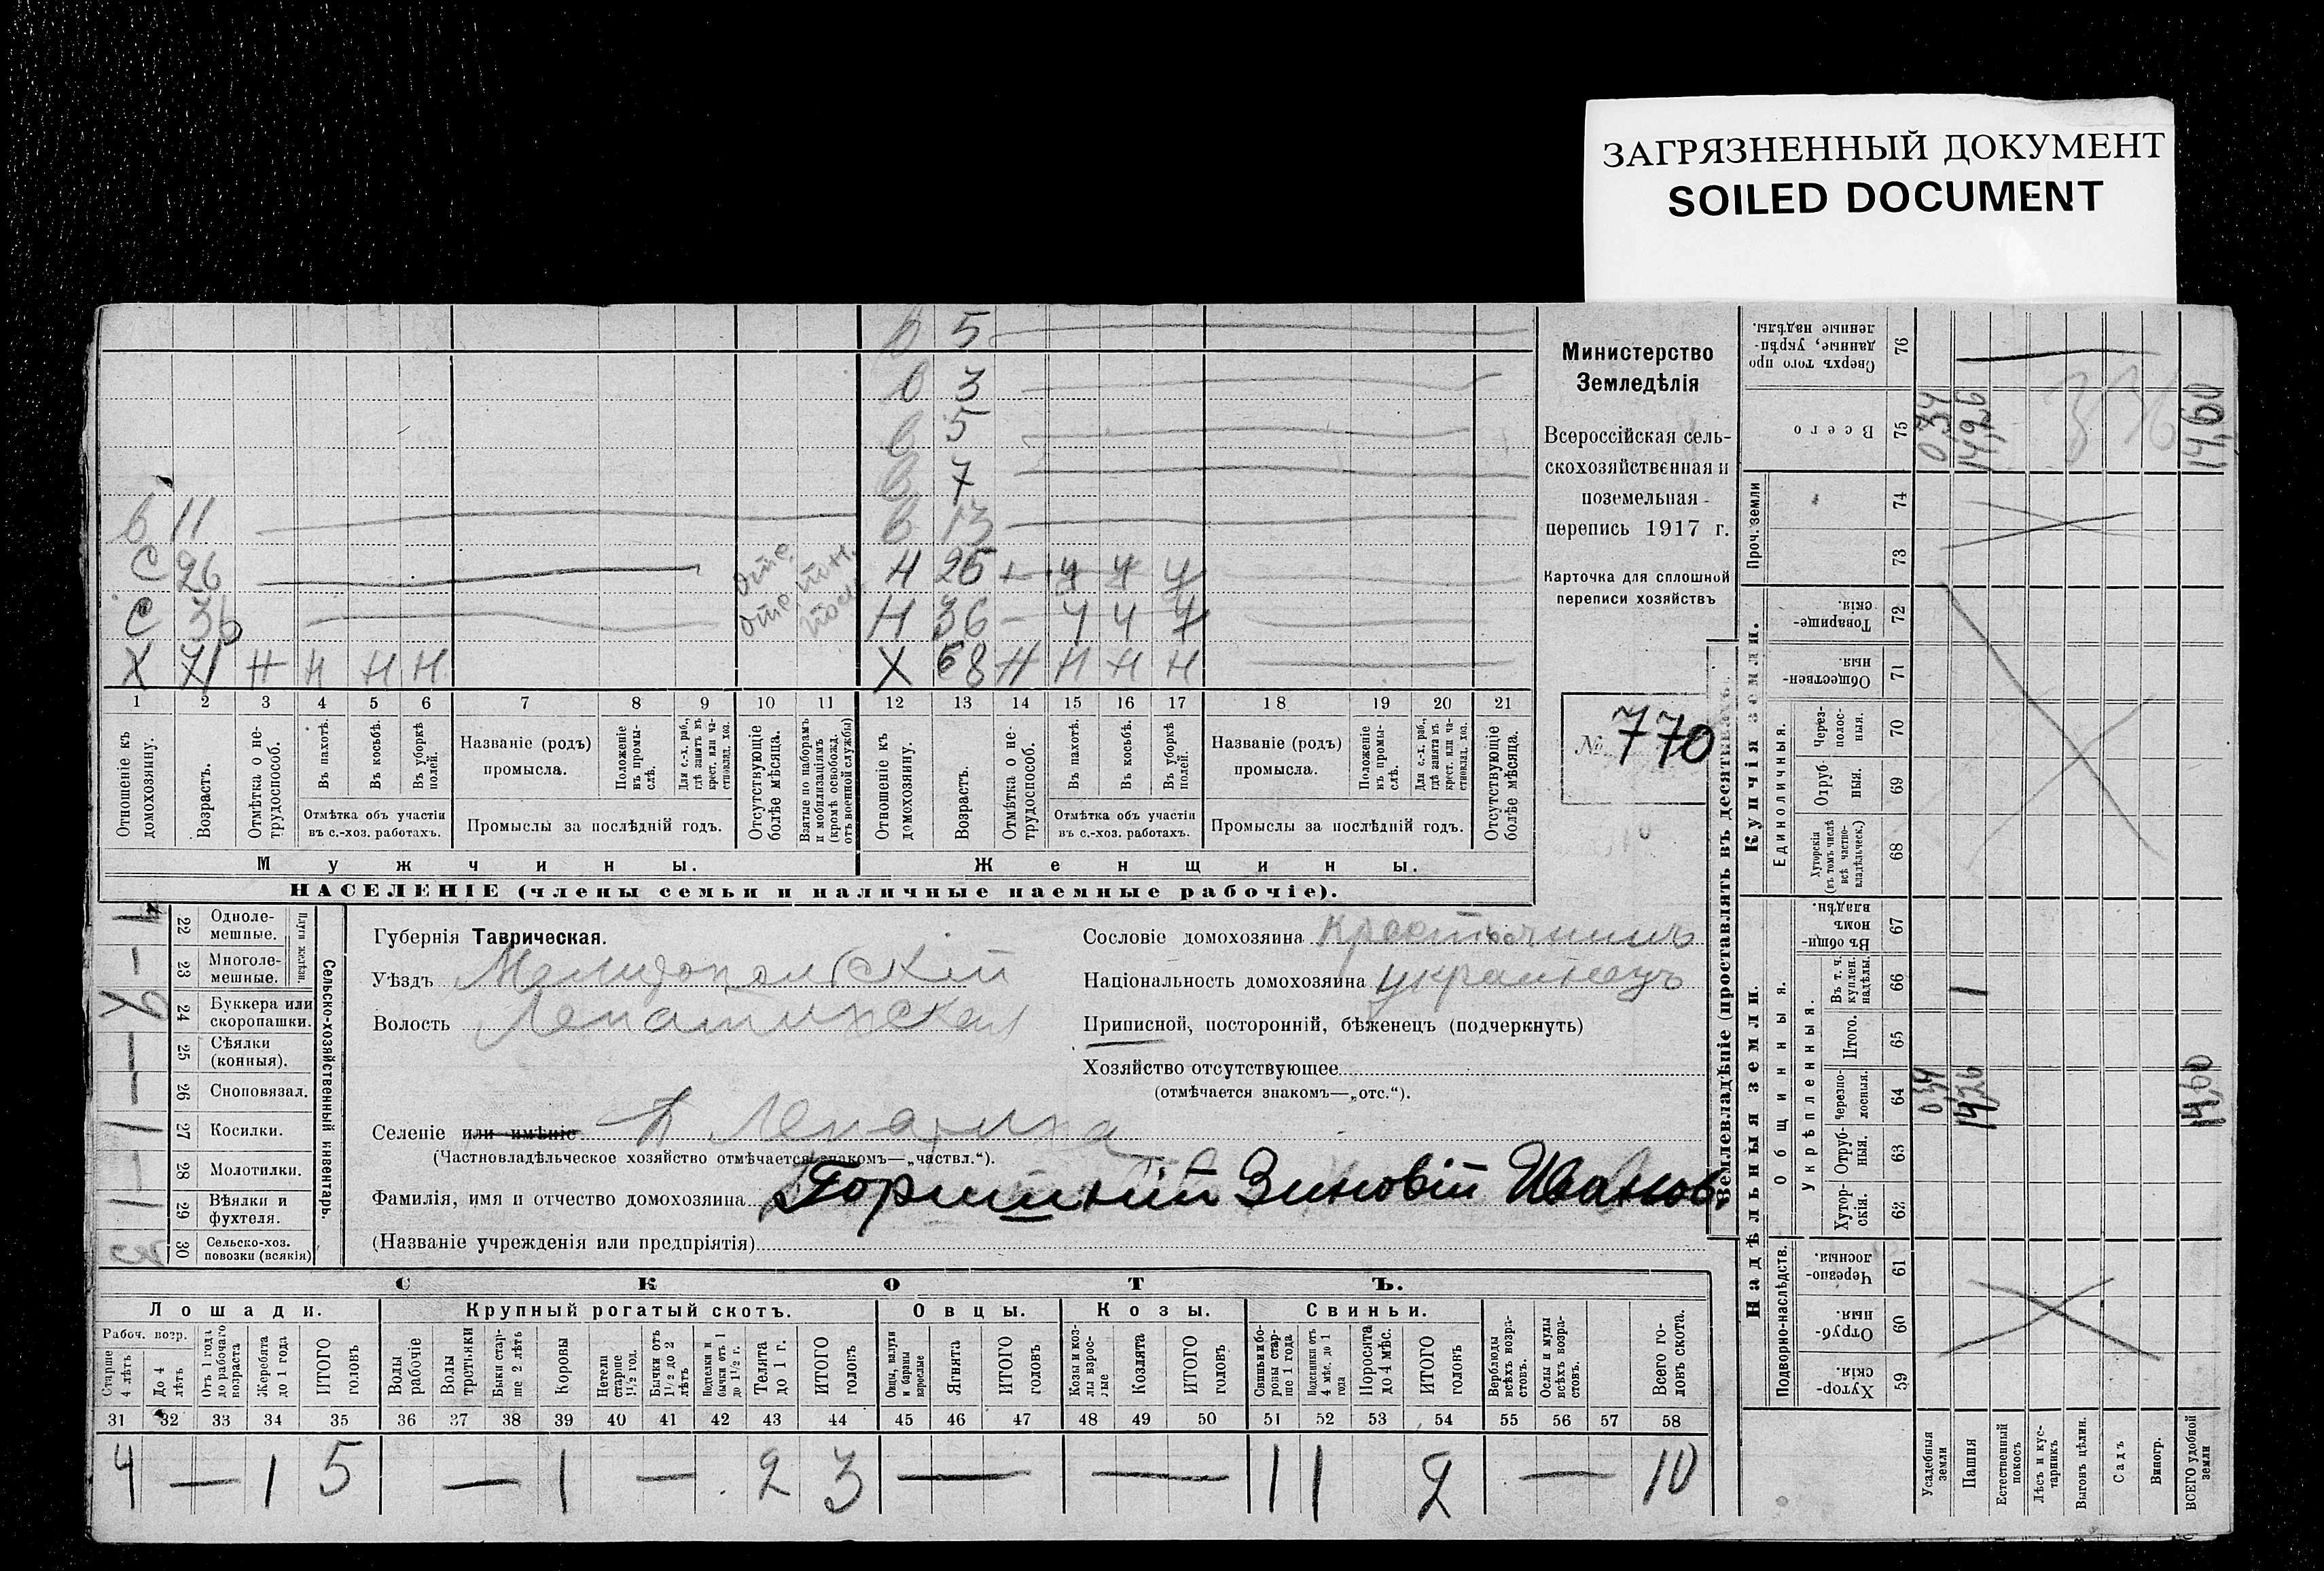 ЗАГРЯЗНЕННЫЙ ДОКУМЕНТ
SOILED DOCUMENT
в 5
в 3
в 5
в 7
в 11
в 13
С 26
отс. моб.
Н 25 + Ч Ч Ч
С 36
отс.
Н 36 — Ч Ч Ч
Х 71 Н Н Н Н
Х 68 Н Н Н Н
1 2 3 4 5 6 7 8 9 10 11 12 13 14 15 16 17 18 19 20 21
Отношеніе къ домохозяину.
Возрастъ.
Отмѣтка о не-
трудоспособ.
Въ пахотѣ.
Въ косьбѣ.
Въ уборкѣ полей.
Отмѣтка объ участіи
въ с.-хоз. работахъ.
Названіе (родъ)
промысла.
Положеніе въ промы-
слѣ.
Для с.-х. раб., гдѣ занятъ въ крест. или ча-
стновлад. хоз.
Промыслы за послѣдній годъ.
Отсутствующіе болѣе мѣсяца.
Взятые по наборамъ и мобилизаціямъ (кромѣ освобожд. отъ военной службы)
Отношеніе къ домохозяину.
Возрастъ.
Отмѣтка о не-
трудоспособ.
Въ пахотѣ.
Въ косьбѣ.
Въ уборкѣ полей.
Отмѣтка объ участіи
въ с.-хоз. работахъ.
Названіе (родъ)
промысла.
Положеніе въ промы-
слѣ.
Для с.-х. раб., гдѣ заняти въ крест. или ча-
стновлад. хоз.
Промыслы за послѣдній годъ.
Отсутствующіе болѣе мѣсяца.
Мужчины.
Женщины.
НАСЕЛЕНІЕ (члены семьи и наличные наемные рабочіе).
Министерство
Земледѣлія
Всероссійская сель-
скохозяйственная и
поземельная
перепись 1917 г.
Карточка для сплошной
переписи хозяйствъ
№ 770
22 Одноле-
мешные.
23 Многоле-
мешные.
Плуги желѣзн.
24 Буккера или
скоропашки.
25 Сѣялки
(конныя).
26 Сноповязал.
27 Косилки.
28 Молотилки.
29 Вѣялки и
фухтеля.
30 Сельско-хоз.
повозки (всякія)
Сельско-хозяйственный инвентарь.
Губернія Таврическая.
Уѣздъ Мелитопольскій
Волость Лепатинская
Селеніе или имѣніе Лепатиха
(Частновладѣльческое хозяйство отмѣчается знакомъ—„частвл.“).
Фамилія, имя и отчество домохозяина Зиновій Иванов.
(Названіе учрежденія или предпріятія)
Сословіе домохозяина крестьянинъ
Національность домохозяина украинецъ
Приписной, посторонній, бѣженецъ (подчеркнуть)
Хозяйство отсутствующее
(отмѣчается знакомъ—„отс.“).
СКОТЪ.
Лошади.
Крупный рогатый скотъ.
Овцы.
Козы.
Свиньи.
Рабоч. возр.
Старше 4 лѣтъ
До 4 лѣтъ
Отъ 1 года до рабочаго возраста
Жеребята до 1 года
ИТОГО головъ
Волы рабочіе
Волы третьяки
Быки стар-
ше 2 лѣтъ
Коровы
Нетели старше 1½ год.
Бычки отъ 1½ до 2 лѣтъ
Подтелки и бычки отъ 1 до 1½ г.
Телята до 1 г.
ИТОГО головъ
Овцы, валухи и бараны взрослые
Ягнята
ИТОГО головъ
Козы и коз-
лы взрос-
лые
Козлята
ИТОГО головъ
Свиньи и бо-
ровы стар-
ше 1 года
Подсвинки отъ 4 мѣс. до 1 года
Поросята до 4 мѣс.
ИТОГО головъ
Верблюды всѣхъ возра-
стовъ.
Ослы и мулы всѣхъ возра-
стовъ.
Всего го-
ловъ скота.
31 32 33 34 35 36 37 38 39 40 41 42 43 44 45 46 47 48 49 50 51 52 53 54 55 56 57 58
4 — 1 5 — 1 — 2 3 — — 1 1 2 — 10
Землевладѣніе (проставлять въ десятинахъ).
Надѣльныя земли.
Купчія земли.
Проч. земли
Подворно-наслѣдств.
Общинныя.
Укрѣпленныя.
Единоличныя.
Сверхъ того про
данные, укрѣп-
ленные надѣлы. 76
Всего 75 0,34 14,26 14,60
74
73
Товарище-
скія. 72
Обществен-
ныя. 71
Через-
полос-
ныя. 70
Отруб
ныя. 69
Хуторскія (въ томъ числѣ всѣ частно-
владѣльческ.) 68
Въ общи-
номъ
владѣн. 67
Въ т. ч. куплен. надѣлы. 66
Итого. 65
Черезпо-
лосныя. 64 0,34 14,26 14,60
Отруб-
ныя. 63
Хутор-
скія. 62
Черезпо-
лосныя. 61
Отруб-
ныя 60
Хутор-
скія. 59
Усадебныя земли
Пашня
Естественный покосъ
Лѣсъ и кус-
тарникъ
Выгонъ цѣлин.
Садъ
Виногр.
ВСЕГО удобной земли
376